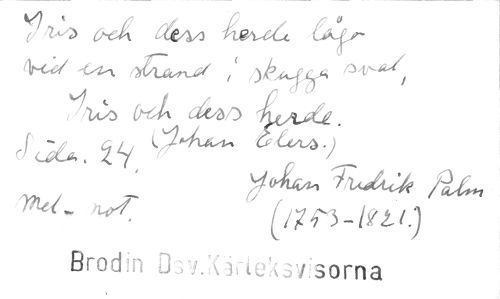 Iris och dess herde lågo
vid en strand i skugga sval,
Iris och dess herde.
(Johan Elers.)
Sida. 24.
Johan Fredrik Palm
mel-not.
(1753-1821.)
Brodin Dsv. Kärleksvisorna